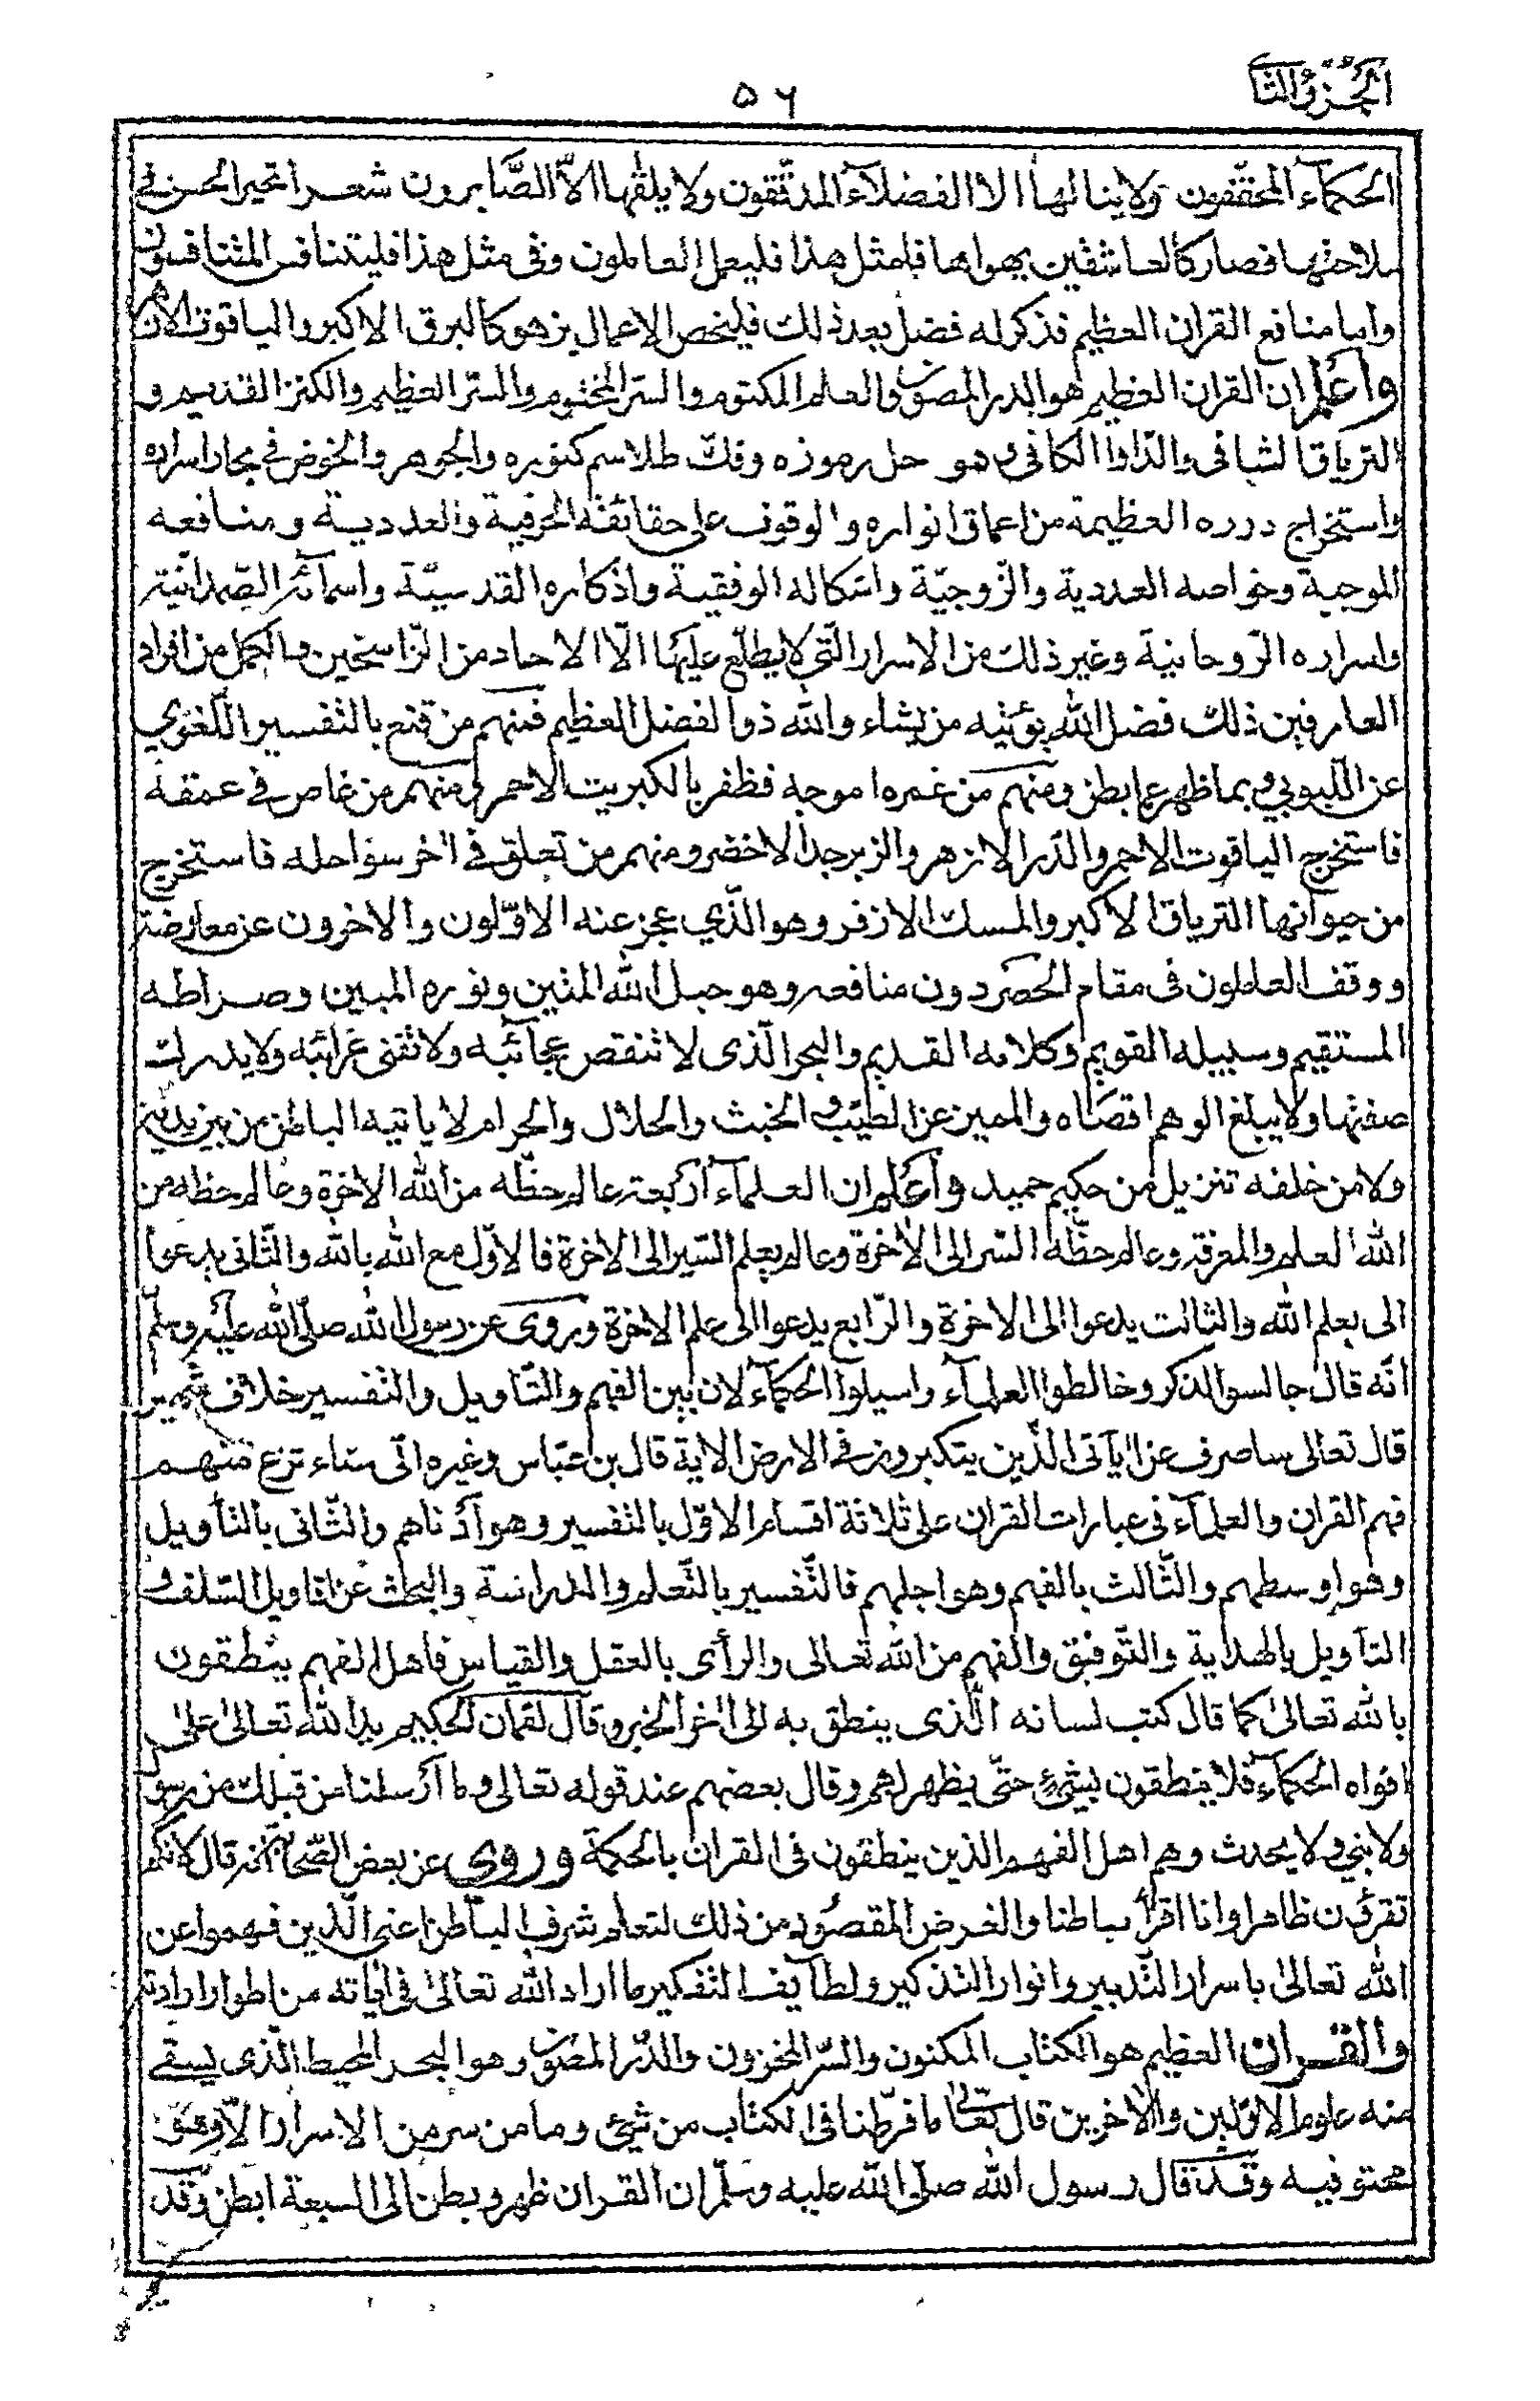 الجزء الثا
٥٦
الحكمآء المحققون ولاينالها الا الفضلآء المدققون ولا يلقيها الاّ الصّابرون شعر اتحير الحسن فى
ملاحتها فصار كالعاشقين يهواها فلمثل هذا فليعمل العاملون وفى مثل هذا فليتنافس المتنافسون
واما منافع القران العظيم فنذكر له فضل بعد ذلك فيلخص الاعمال يزهو كالبرق الاكبر والياقوت
واعلم ان القران العظيم هو الدر المصون والعلم المكتوم والسر المختوم والسّر العظيم والكنز القديم و
الترياق الشافى والدّاوا الكافى وهو حل رموزه وفكّ طلاسم كنوزه والجوهر والخوض فى بحار اسراره
واستخراج درره العظيمة من اعماق انواره والوقوف على حقائقه الحرفية والعددية ومنافعه
الموجبة وخواصه العددية والزّوجيّة واشكاله الوفقية واذكاره القدسيّة واسمائه الصّمدانيّة
واسراره الرّوحانية وغير ذلك من الاسرار الّتى لا يطلّع عليها الاّ الاحاد من الرّاسخين والكمل من افراد
العارفين ذلك فضل الله يؤتيه من يشاء والله ذوا لفضل العظيم فمنهم من قنع بالتفسير اللّغوي
عن اللّبوبي وبما ظهر عما بطن ومنهم من غمره امواجه فظفر بالكبريت الاحمر ومنهم من غاص فى عمقه
فاستخرج الياقوت الاحمر والدّر الازهر والزبرجد الاخضر ومنهم من تعلق فى اخر سواحله فاستخرج
من حيوانها الترياق الاكبر والمسك الازفر وهو الّذي عجز عنه الاوّلون والاخرون عن معارضته
ووقف العاملون فى مقام الحصر دون منافعه وهو حبل الله المتين ونوره المبين وصراطه
المستقيم وسبيله القويم وكلامه القديم والبحر الّذى لا تنقص عجائبه ولا تفنى غرائبه ولا يدرك
صفتها ولا يبلغ الوهم اقصاه والمميز عن الطيّب والخبث والحلال والحرام لا ياتيه الباطل من بين يديه
ولا من خلفه تنزيل من حكيم حميد واعلم ان العلمآء اربعة عالم حظّه من الله الاخرة وعالم حظه من
الله العلم والمعرفة وعالم حظّه السّر الى الاخرة وعالم يعلم السّير الى الاخرة فالاوّل مع الله بالله والثّانى يدعوا
الى بعلم الله والثالث يدعوا الى الاخرة والرّابع يدعوا الى علم الاخرة وروى عن رسول الله صلّى الله عليه وسلّم
انّه قال جالسوا لذكر وخالطوا العلمآء واسيلوا الحكمآء لان بين الفهم والتّاويل والتفسير خلاف
قال تعالى ساصرف عن اياتى الّذين يتكبرون فى الارض الاية قال بن عبّاس وغيره انّى نزع منهم
فهم القران والعلمآء فى عبارات القران على ثلاثة اقسام الاوّل بالتفسير وهو ادناهم والثّانى بالتأويل
وهو اوسطهم والثّالث بالفهم وهو اجلهم فالتّفسير بالتّعلم والدراسة والبحث عن تاويل السّلف و
التاويل بالهداية والتّوفيق والفهم من الله تعالى والرأى بالعقل والقياس فاهل الفهم ينطقون
بالله تعالى كما قال كتب لسانه الّذى ينطق به الى اخر الخبر وقال لقمان الحكيم يد الله تعالى على
افواه الحكمآء فلا ينطقون بشيء حتّى يظهر لهم وقال بعضهم عند قوله تعالى وما ارسلنا من قبلك من رسول
ولا نبى ولا يحدث وهم اهل الفهم الذين ينطقون فى القران بالحكمة وروى عن بعض الصّحابة انه قال
تقرؤن ظاهرا وانا اقرأ باطنا والغرض المقصود من ذلك لتعلم شرف الباطن اعنى الّذين فهموا عن
الله تعالى باسرار التّدبير وانوار التذكير ولطآيف التفكير ما اراد الله تعالى فى اياته من اطوار ارادته
والقران العظيم هو الكتاب المكنون والسّر المخزون والدّر المصون وهو البحر المحيط الّذى يسقى
منه علوم الاوّلين والاخرين قال تعالى ما فرّطنا فى الكتاب من شئ وما من سر من الاسرار الاّ وهو
محتو فيه وقد قال رسول الله صلّى الله عليه وسلّم ان القران ظهر وبطن الى السبعة ابطن وقد